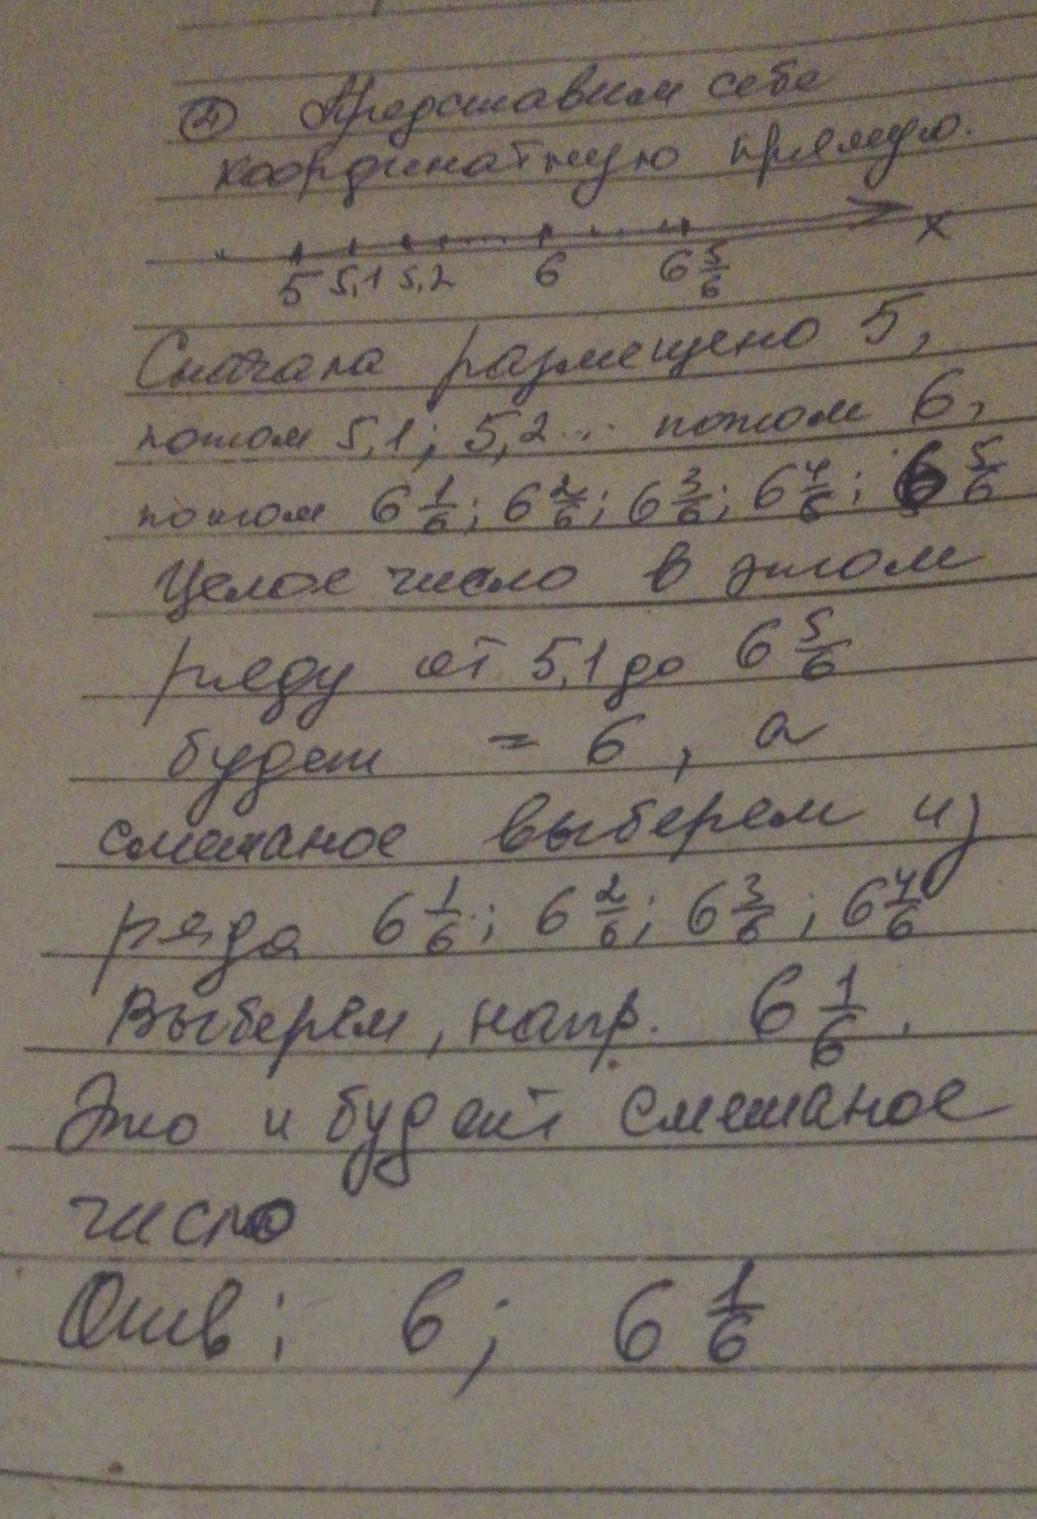 ② Представим себе
координатную прямую.
5 5,1 5,2 6 6 5/6 x
Сначала размещено 5,
потом 5,1; 5,2... потом 6,
потом 6 1/6; 6 2/6; 6 3/6; 6 4/6; 6 5/6
Целое число в этом
ряду от 5,1 до 6 5/6
будет = 6, а
смешаное выберем из
ряда 6 1/6; 6 2/6; 6 3/6; 6 4/6
Выберем, напр. 6 1/6.
Это и будет смешаное
число
Отв: 6; 6 1/6